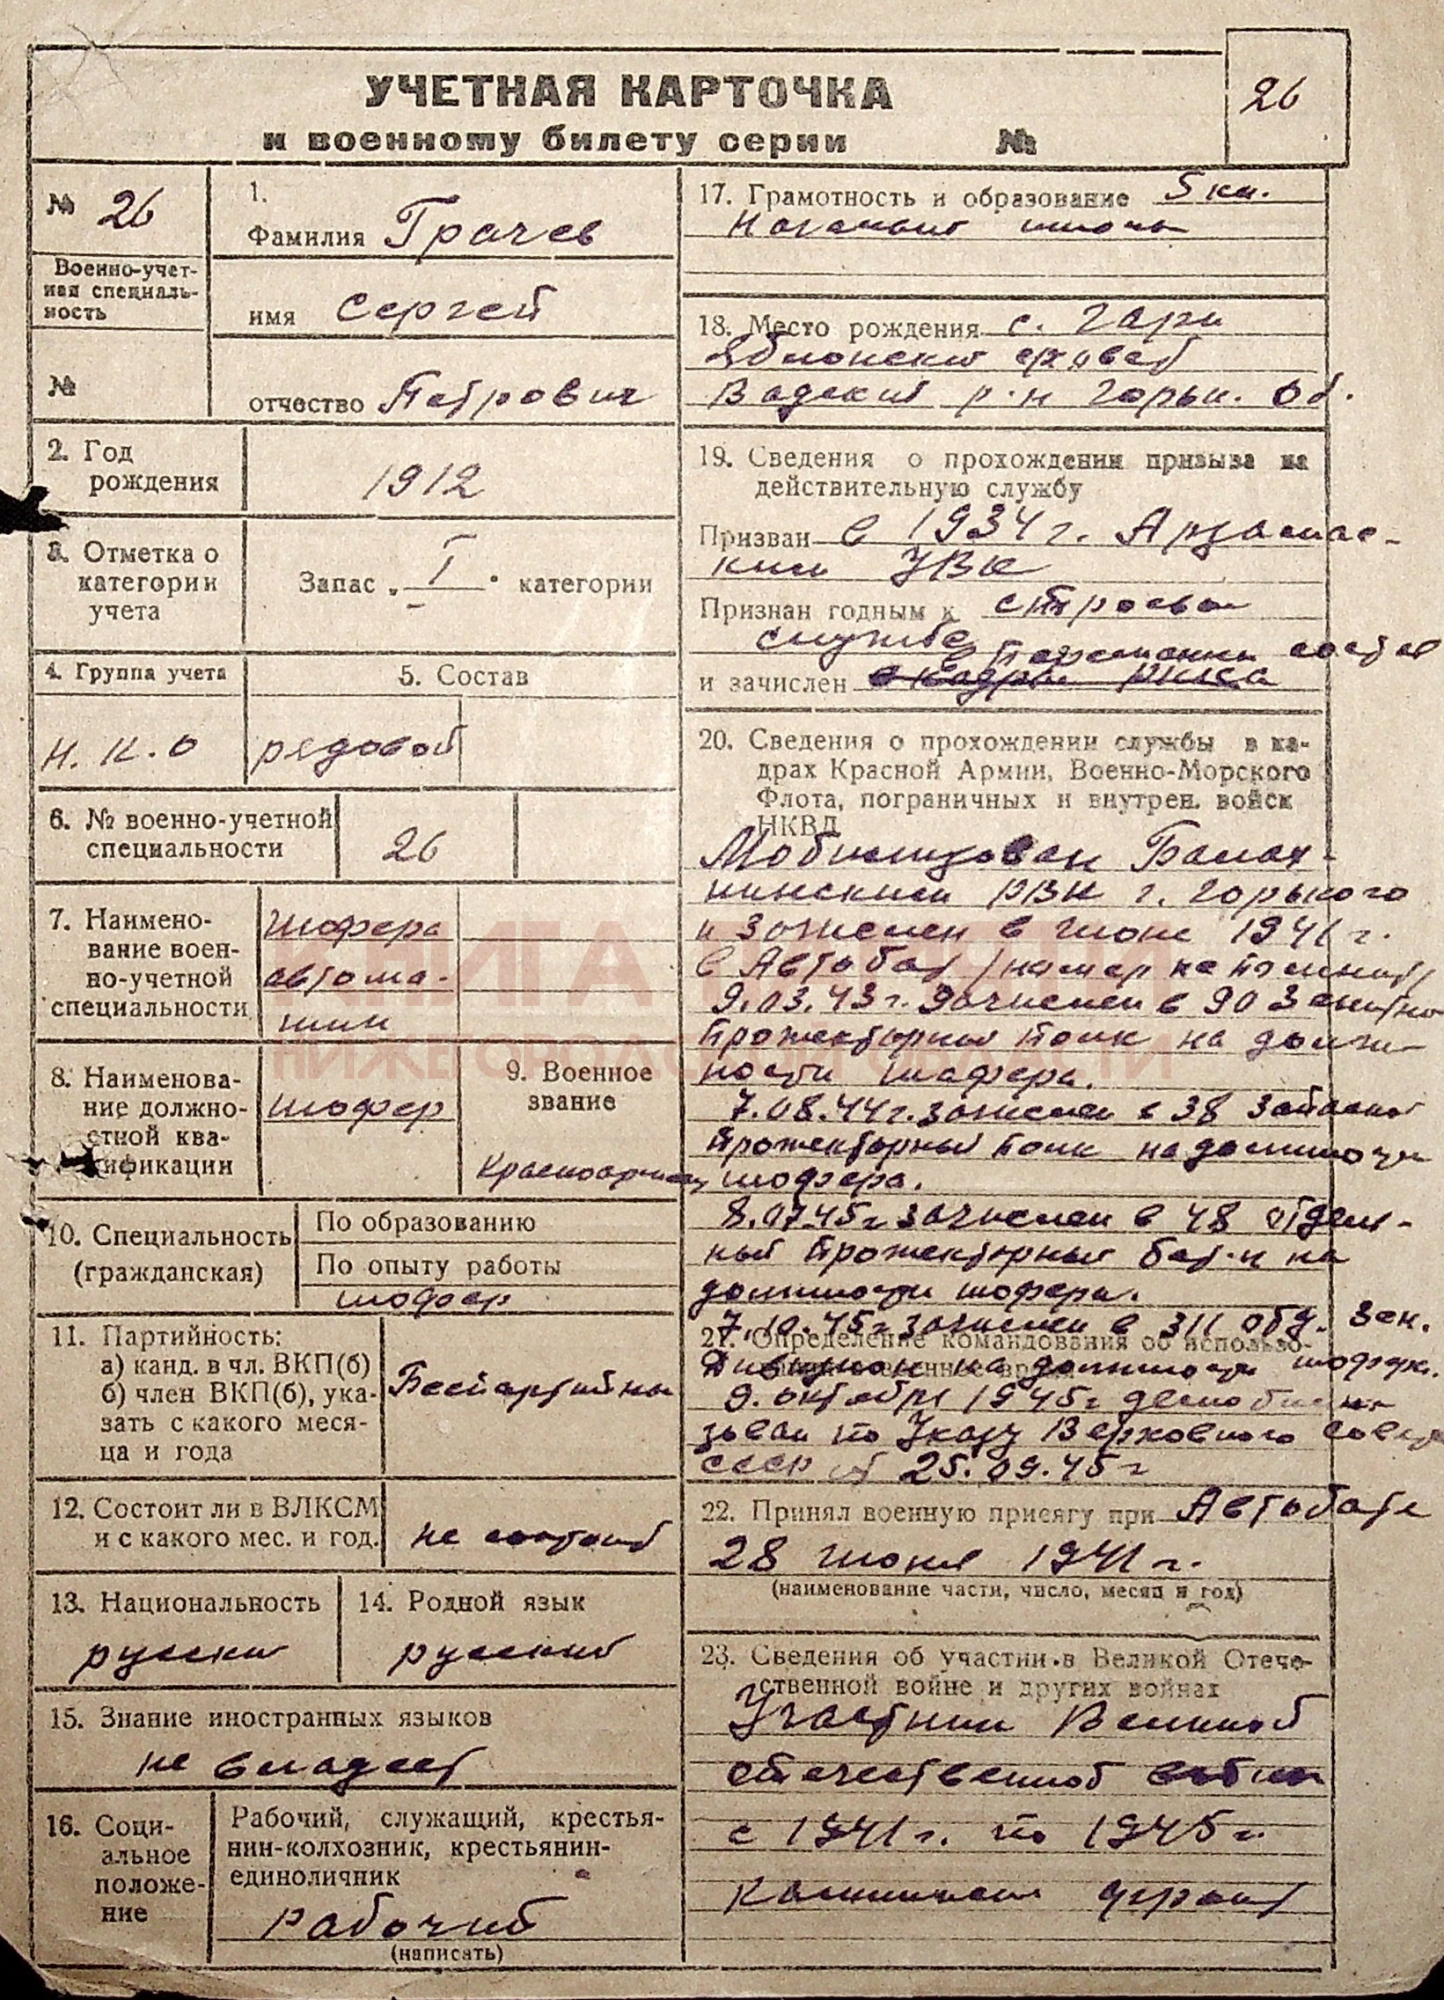 УЧЕТНАЯ КАРТОЧКА
к военному билету серии №
26
№ 26
Военно-учет-
ная специаль-
ность
№
1.
Фамилия Грачев
имя Сергей
отчество Петрович
2. Год
рождения
1912
3. Отметка о
категории
учета
Запас „ I " категории
4. Группа учета
Н.К.О
5. Состав
рядовой
6. № военно-учетной
специальности
26
7. Наимено-
вание воен-
но-учетной
специальности
Шофера
автома-
шин
8. Наименова-
ние должно-
стной ква-
ификации
шофер
9. Военное
звание
Красноармеец
10. Специальность
(гражданская)
По образованию
По опыту работы
шофер
11. Партийность:
а) канд. в чл. ВКП(б)
б) член ВКП(б), ука-
зать с какого меся-
ца и года
Беспартийный
12. Состоит ли в ВЛКСМ
и с какого мес. и год.
не состоит
13. Национальность
русский
14. Родной язык
русский
15. Знание иностранных языков
не владеет
16. Соци-
альное
положе-
ние
Рабочий, служащий, крестья-
нин-колхозник, крестьянин-
единоличник
рабочий
(написать)
17. Грамотность и образование 5 кл.
школы
18. Место рождения с. Гари
Вадский р-н Горьк. об.
19. Сведения о прохождении призыва на
действительную службу
Призван в 1934 г. Арзамас-
ким УВК
Признан годным к строевой
службе
и зачислен в кадры РККА
20. Сведения о прохождении службы в ка-
драх Красной Армии, Военно-Морского
Флота, пограничных и внутрен. войск
НКВД
Мобилизован Балах-
нинским РВК г. Горького
и зачислен в июне 1941 г.
в Автобат /номер не помнит/
9.03.43 г. зачислен в 90 Зенитно
Прожекторный полк на долж-
ности шофера.
7.08.44 г. зачислен в 38 запасной
Прожекторный полк на должности
шофера.
8.07.45 г зачислен в 48 отдель-
ный Прожекторный бат-н на
должности шофера.
7.10.45 г зачислен в 311 отд. Зен.
21. Определение командования об использо-
Дивизион на должности шофера.
9. октября 1945 г демобили-
зован по Указу Верховного Совета
СССР от 25.09.45 г
22. Принял военную присягу при Автобате
28 июня 1941 г.
(наименование части, число, месяц и год)
23. Сведения об участии в Великой Отече-
ственной войне и других войнах
Участник Великой
отечественной войны
с 1941 г. по 1945 г.
КНИГА ПАМЯТИ
НИЖЕГОРОДСКОЙ ОБЛАСТИ